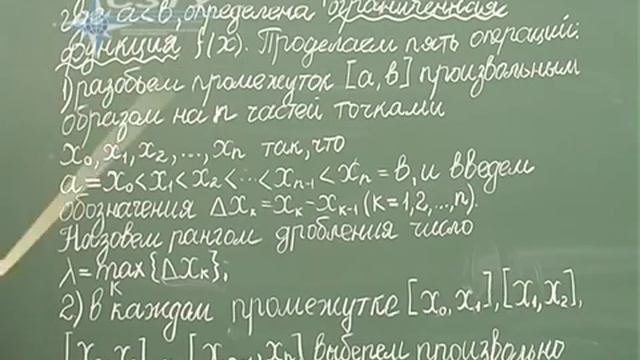 где a<b, определена ограниченная
функция f(x). Проделаем пять операций:
1) разобьем промежуток [a, b] произвольным
образом на n частей точками
x₀, x₁, x₂, ..., xₙ так, что
a = x₀ < x₁ < x₂ < ... < xₙ₋₁ < xₙ = b, и введем
обозначения Δxₖ = xₖ - xₖ₋₁ (k = 1, 2, ..., n).
Назовем рангом дробления число
λ = max{Δxₖ};
k
2) в каждом промежутке [x₀, x₁], [x₁, x₂],
выберем произвольно